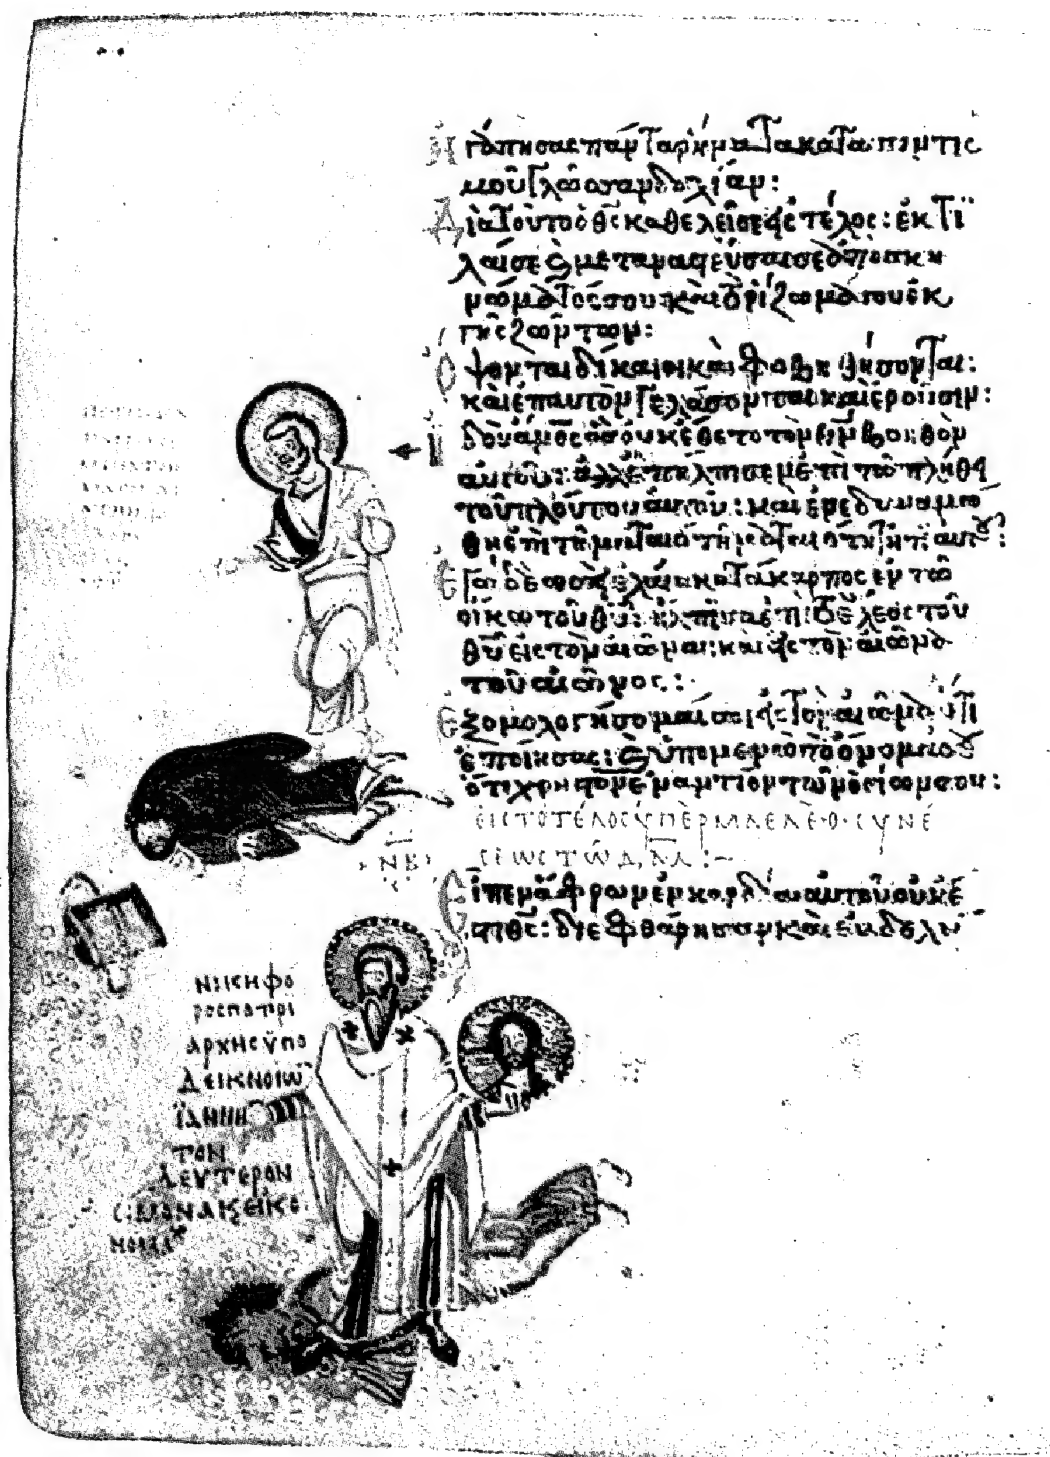 Ἠγάπησας πάντα ῥήματα καταποντισ
μοῦ γλῶσσαν δολίαν:
Διὰ τοῦτο ὁ θς καθελεῖ σε εἰς τέλος: ἐκτί
λαι σε καὶ μεταναστεύσαι σε ἀπὸ σκη
νώματός σου καὶ τὸ ῥίζωμά σου ἐκ
γῆς ζώντων:
Ὄψονται δίκαιοι καὶ φοβηθήσονται:
καὶ ἐπ αυτὸν γελάσονται καὶ ἐροῦσιν:
Ἰδοὺ ἄνος ὃς οὐκ ἔθετο τὸν θν βοηθὸν
αὐτοῦ: ἀλλ ἐπήλπισεν ἐπὶ τῶ πλήθει
τοῦ πλούτου αὐτοῦ: καὶ ἐνεδυναμώ
θη ἐπὶ τῆ ματαιότητι αὐτοῦ:
Ἐγὼ δὲ ὡσεὶ ἐλαία κατάκαρπος ἐν τῶ
οἴκω τοῦ θυ: ἤλπισα ἐπὶ τὸ ἔλεος τοῦ
θυ εἰς τὸν αἰῶνα: καὶ εἰς τὸν αἰῶνα
τοῦ αἰῶνος:
Ἐξομολογήσομαί σοι εἰς τὸν αἰῶνα ὅτι
ἐποίησας: καὶ ὑπομενῶ τὸ ὄνομά σου
ὅτι χρηστὸν ἐναντίον τῶν ὁσίων σου:
ΕΙΣ ΤΟ ΤΕΛΟΣ ΥΠΕΡ ΜΑΕΛΕΘ ΣΥΝΕ
ΣΕΩΣ ΤΩ ΔΑΔ:
ΝΒ
Εἶπεν ἄφρων ἐν καρδία αὐτοῦ οὐκ ἔ
στι θς: διεφθάρησαν καὶ ἐβδελύ
ΝΙΚΗΦΟ
ΡΟΣ ΠΑΤΡΙ
ΑΡΧΗΣ ΥΠΟ
ΔΕΙΚΝΟΙΩ
ΪΑΝΝΗ
ΤΟΝ
ΔΕΥΤΕΡΟΝ
ΣΙΜΟΝΑ Κ ΕΙΚΟ